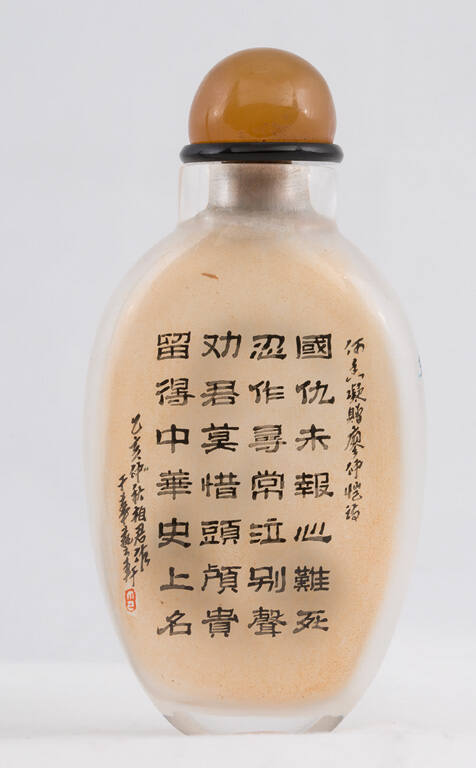 何香凝贈廖仲愷詩
國仇未報心難死
忍作尋常泣别聲
劝君莫惜頭顱貴
留得中華史上名
乙亥仲秋